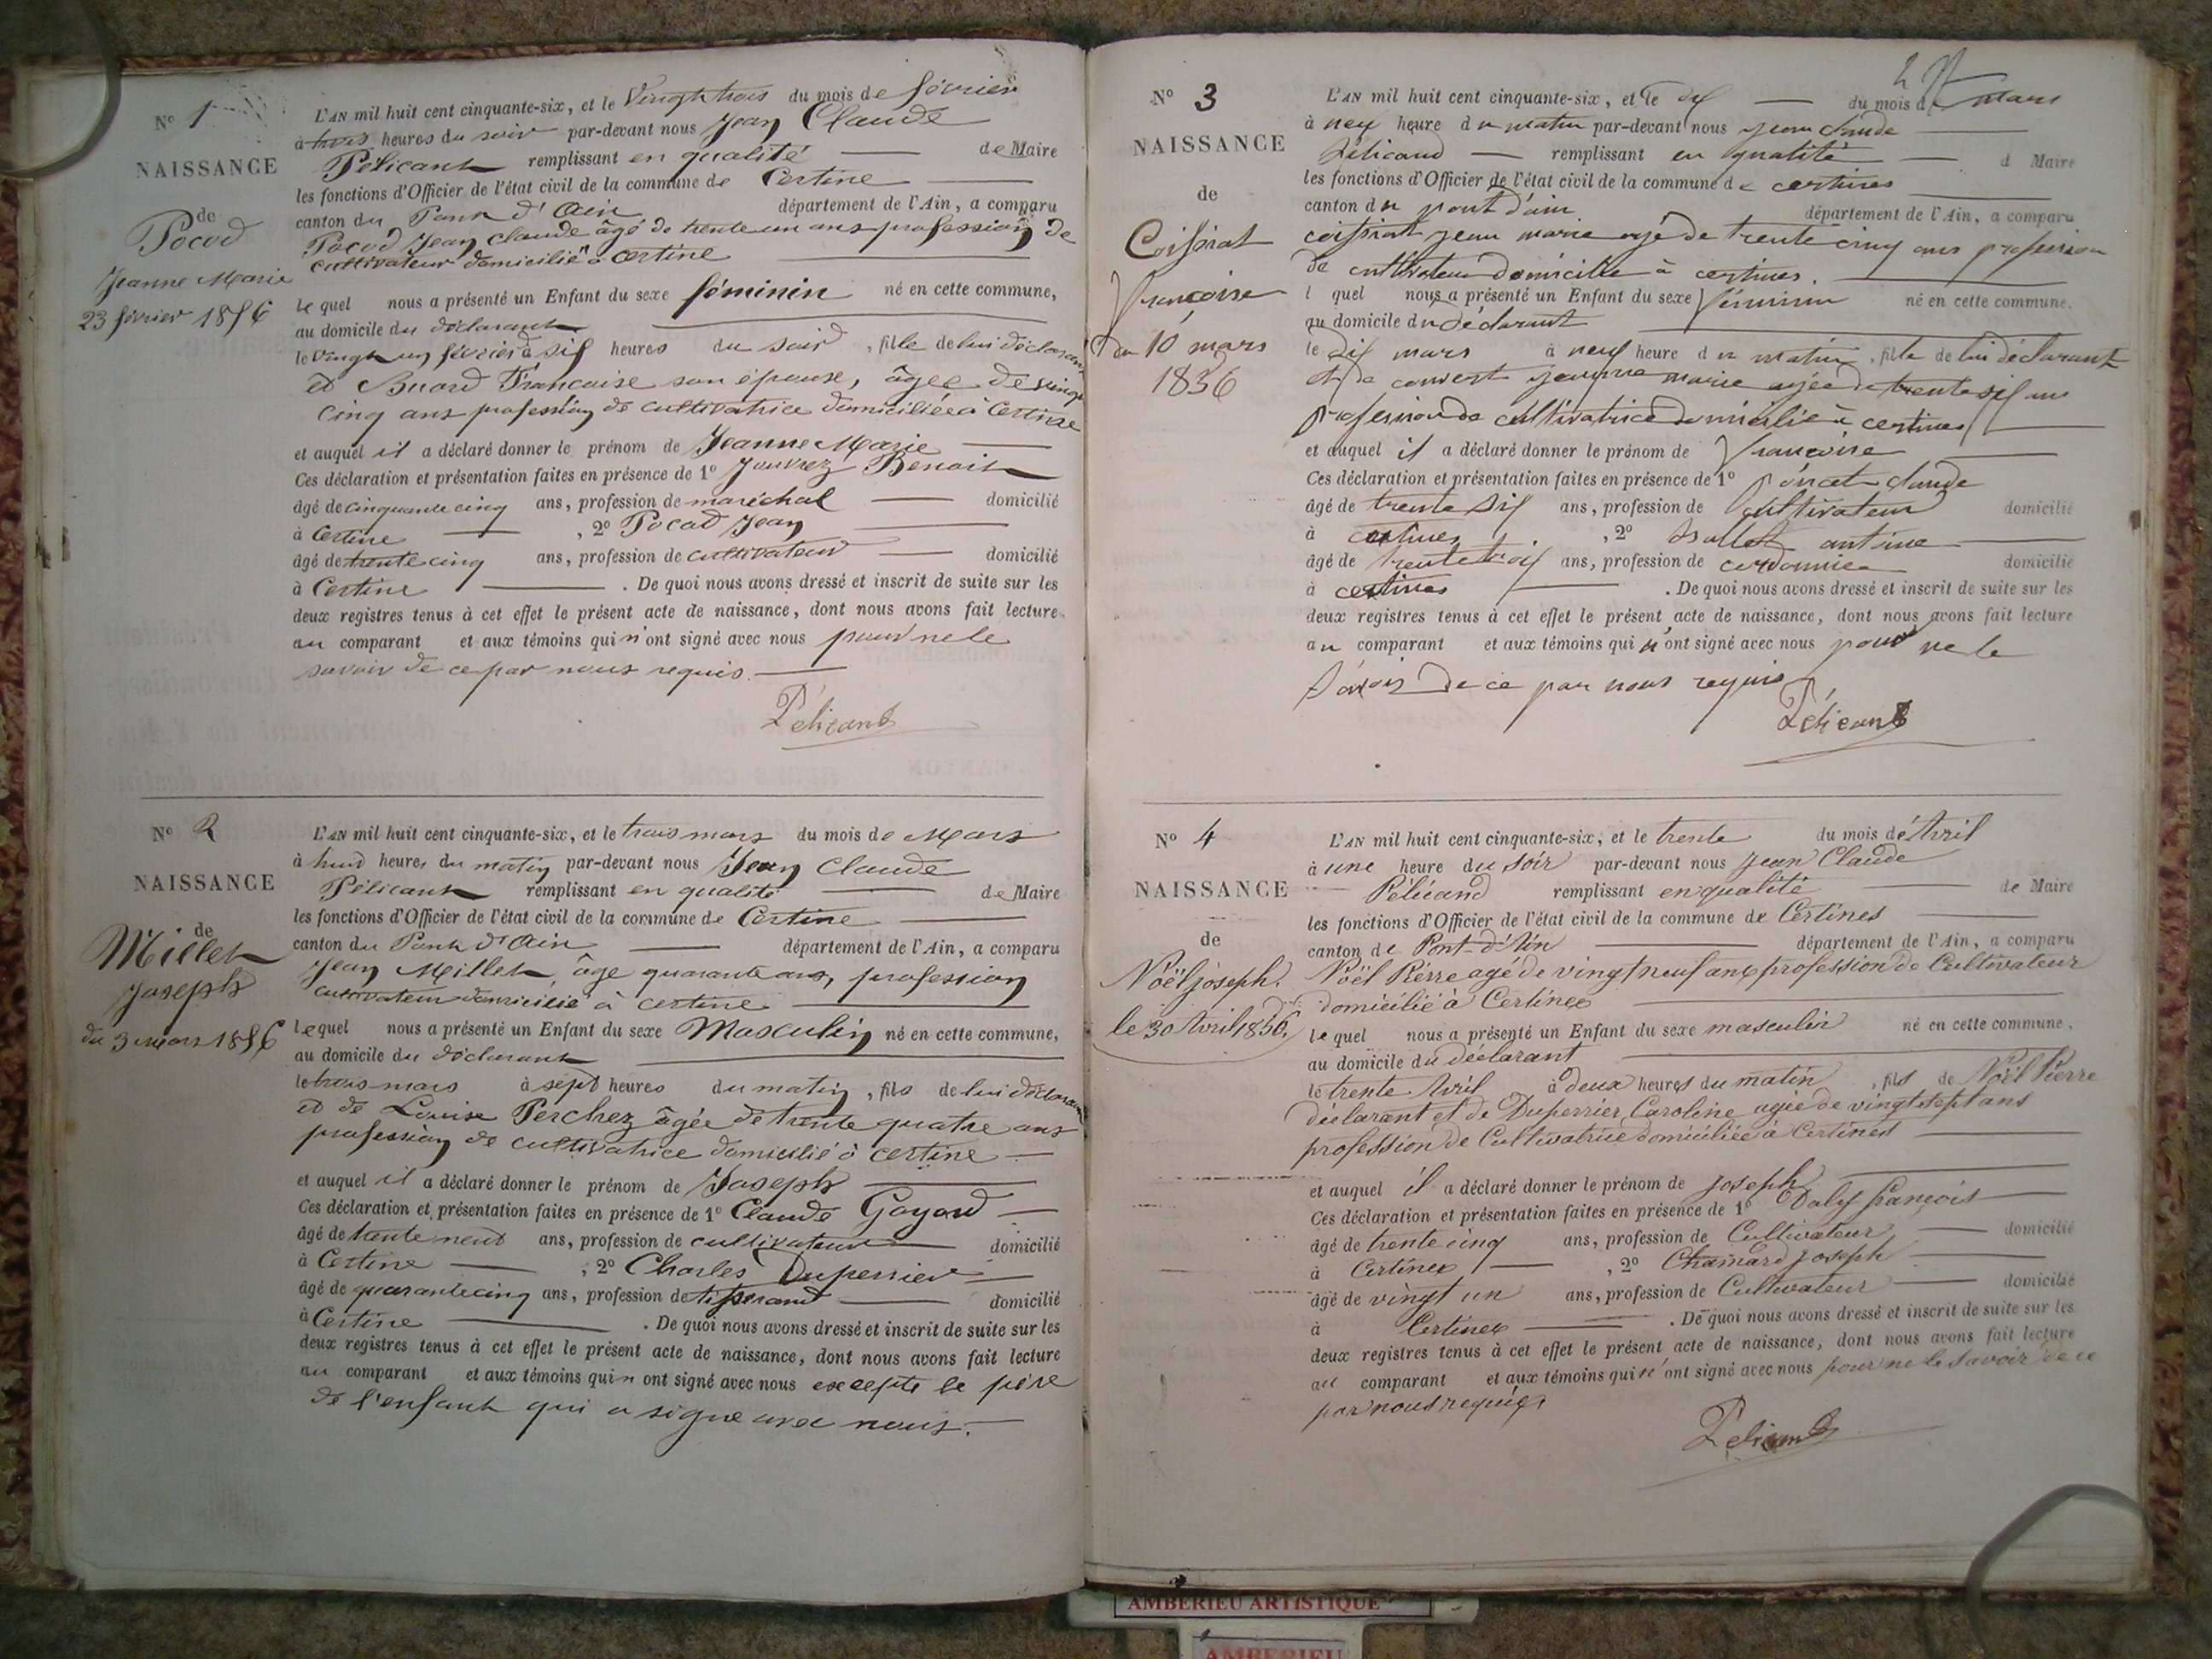 N° 1
NAISSANCE
de
Pocod
Jeanne Marie
23 février 1856
L'AN mil huit cent cinquante-six, et le Vingt trois du mois de février
à trois heures du soir par-devant nous Jean Claude
Pélicant remplissant en qualité de Maire
les fonctions d'Officier de l'état civil de la commune de Certine
canton du Pont d'Ain département de l'Ain, a comparu
Pocod Jean claude âgé de trente un ans profession de
cultivateur domicilié à Certine
le quel nous a présenté un Enfant du sexe féminin né en cette commune,
au domicile du déclarant
le vingt un février à six heures du soir, fille de lui déclarant
et Buard Francoise son épouse, âgée de vingt
cinq ans profession de cultivatrice domiciliée à Certine
et auquel il a déclaré donner le prénom de Jeanne Marie
Ces déclaration et présentation faites en présence de 1° Benoit
âgé de cinquante cinq ans, profession de maréchal domicilié
à Certine , 2° Pocod Jean
âgé de trente cinq ans, profession de cultivateur domicilié
à Certine . De quoi nous avons dressé et inscrit de suite sur les
deux registres tenus à cet effet le présent acte de naissance, dont nous avons fait lecture
au comparant et aux témoins qui n'ont signé avec nous pour ne le
savoir de ce par nous requis.
Pélicant
N° 2
NAISSANCE
de
Millet
Joseph
du 3 mars 1856
L'AN mil huit cent cinquante-six, et le trois mars du mois de Mars
à huit heures du matin par-devant nous Jean Claude
Pélicant remplissant en qualité de Maire
les fonctions d'Officier de l'état civil de la commune de Certine
canton du Pont d'Ain département de l'Ain, a comparu
Jean Millet, âge quarante ans, profession
cultivateur domicilié à certine
le quel nous a présenté un Enfant du sexe Masculin né en cette commune,
au domicile du déclarant
le trois mars à sept heures du matin, fils de lui déclarant
et de Louise Perchez âgée de trente quatre ans
profession de cultivatrice domicilié à certine
et auquel il a déclaré donner le prénom de Joseph
Ces déclaration et présentation faites en présence de 1° Claude Goyard
âgé de trente neuf ans, profession de cultivateur domicilié
à Certine , 2° Charles Duperrier
âgé de quarante cinq ans, profession de tisserand domicilié
à Certine . De quoi nous avons dressé et inscrit de suite sur les
deux registres tenus à cet effet le présent acte de naissance, dont nous avons fait lecture
au comparant et aux témoins qui n ont signé avec nous excepté le père
de l'enfant qui a signe avec nous.
2
N° 3
NAISSANCE
de
Coissiat
françoise
du 10 mars
1856
L'AN mil huit cent cinquante-six, et le dix du mois d mars
à neuf heure du matin par-devant nous jean claude
Pélicand remplissant en qualité d Maire
les fonctions d'Officier de l'état civil de la commune de certines
canton du pont d'ain département de l'Ain, a comparu
coissiat jean marie agé de trente cinq ans profession
de cultivateur domicilié à certines.
l quel nous a présenté un Enfant du sexe féminin né en cette commune.
au domicile du déclarant
le dix mars à neuf heure du matin, fille de lui déclarant
et de convert jeanne marie agée de trente six ans
profession de cultivatrice domicilié à certines
et auquel il a déclaré donner le prénom de françoise
Ces déclaration et présentation faites en présence de 1° poncet claude
âgé de trente six ans, profession de cultivateur domicilié
à certines , 2° antoine
âgé de trente trois ans, profession de cordonnier domicilié
à certines . De quoi nous avons dressé et inscrit de suite sur les
deux registres tenus à cet effet le présent acte de naissance, dont nous avons fait lecture
au comparant et aux témoins qui n'ont signé avec nous pour ne le
savoir de ce par nous requis
Pélicant
N° 4
NAISSANCE
de
Noël joseph.
le 30 Avril 1856.
L'AN mil huit cent cinquante-six, et le trente du mois d'Avril
à une heure du soir par-devant nous jean Claude
Pélicand remplissant en qualité de Maire
les fonctions d'Officier de l'état civil de la commune de Certines
canton de Pont-d'Ain département de l'Ain, a comparu
Noël Pierre agé de vingt neuf ans profession de Cultivateur
domicilié à Certines
le quel nous a présenté un Enfant du sexe masculin né en cette commune,
au domicile du déclarant
le trente Avril à deux heures du matin, fils de Noël Pierre
déclarant et de Duperrier Caroline agée de vingt sept ans
profession de Cultivatrice domiciliée à Certines
et auquel il a déclaré donner le prénom de joseph
Ces déclaration et présentation faites en présence de 1° Daly françois
âgé de trente cinq ans, profession de Cultivateur domicilié
à Certines , 2° Chamard joseph
âgé de vingt un ans, profession de Cultivateur domicilié
à Certines . De quoi nous avons dressé et inscrit de suite sur les
deux registres tenus à cet effet le présent acte de naissance, dont nous avons fait lecture
au comparant et aux témoins qui n'ont signé avec nous pour ne le savoir de ce
par nous requis
Pelicand
AMBERIEU ARTISTIQUE
AMBERIEU